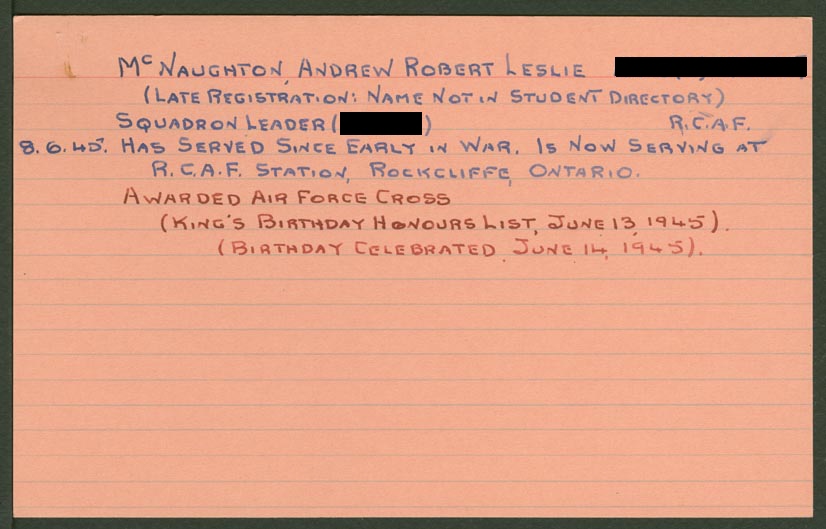 McNAUGHTON, ANDREW ROBERT LESLIE
(LATE REGISTRATION: NAME NOT IN STUDENT DIRECTORY)
SQUADRON LEADER ( ) R.C.A.F.
8.6.45. HAS SERVED SINCE EARLY IN WAR. IS NOW SERVING AT
R.C.A.F. STATION, ROCKCLIFFE, ONTARIO.
AWARDED AIR FORCE CROSS
(KING'S BIRTHDAY HONOURS LIST, JUNE 13, 1945).
(BIRTHDAY CELEBRATED JUNE 14, 1945).